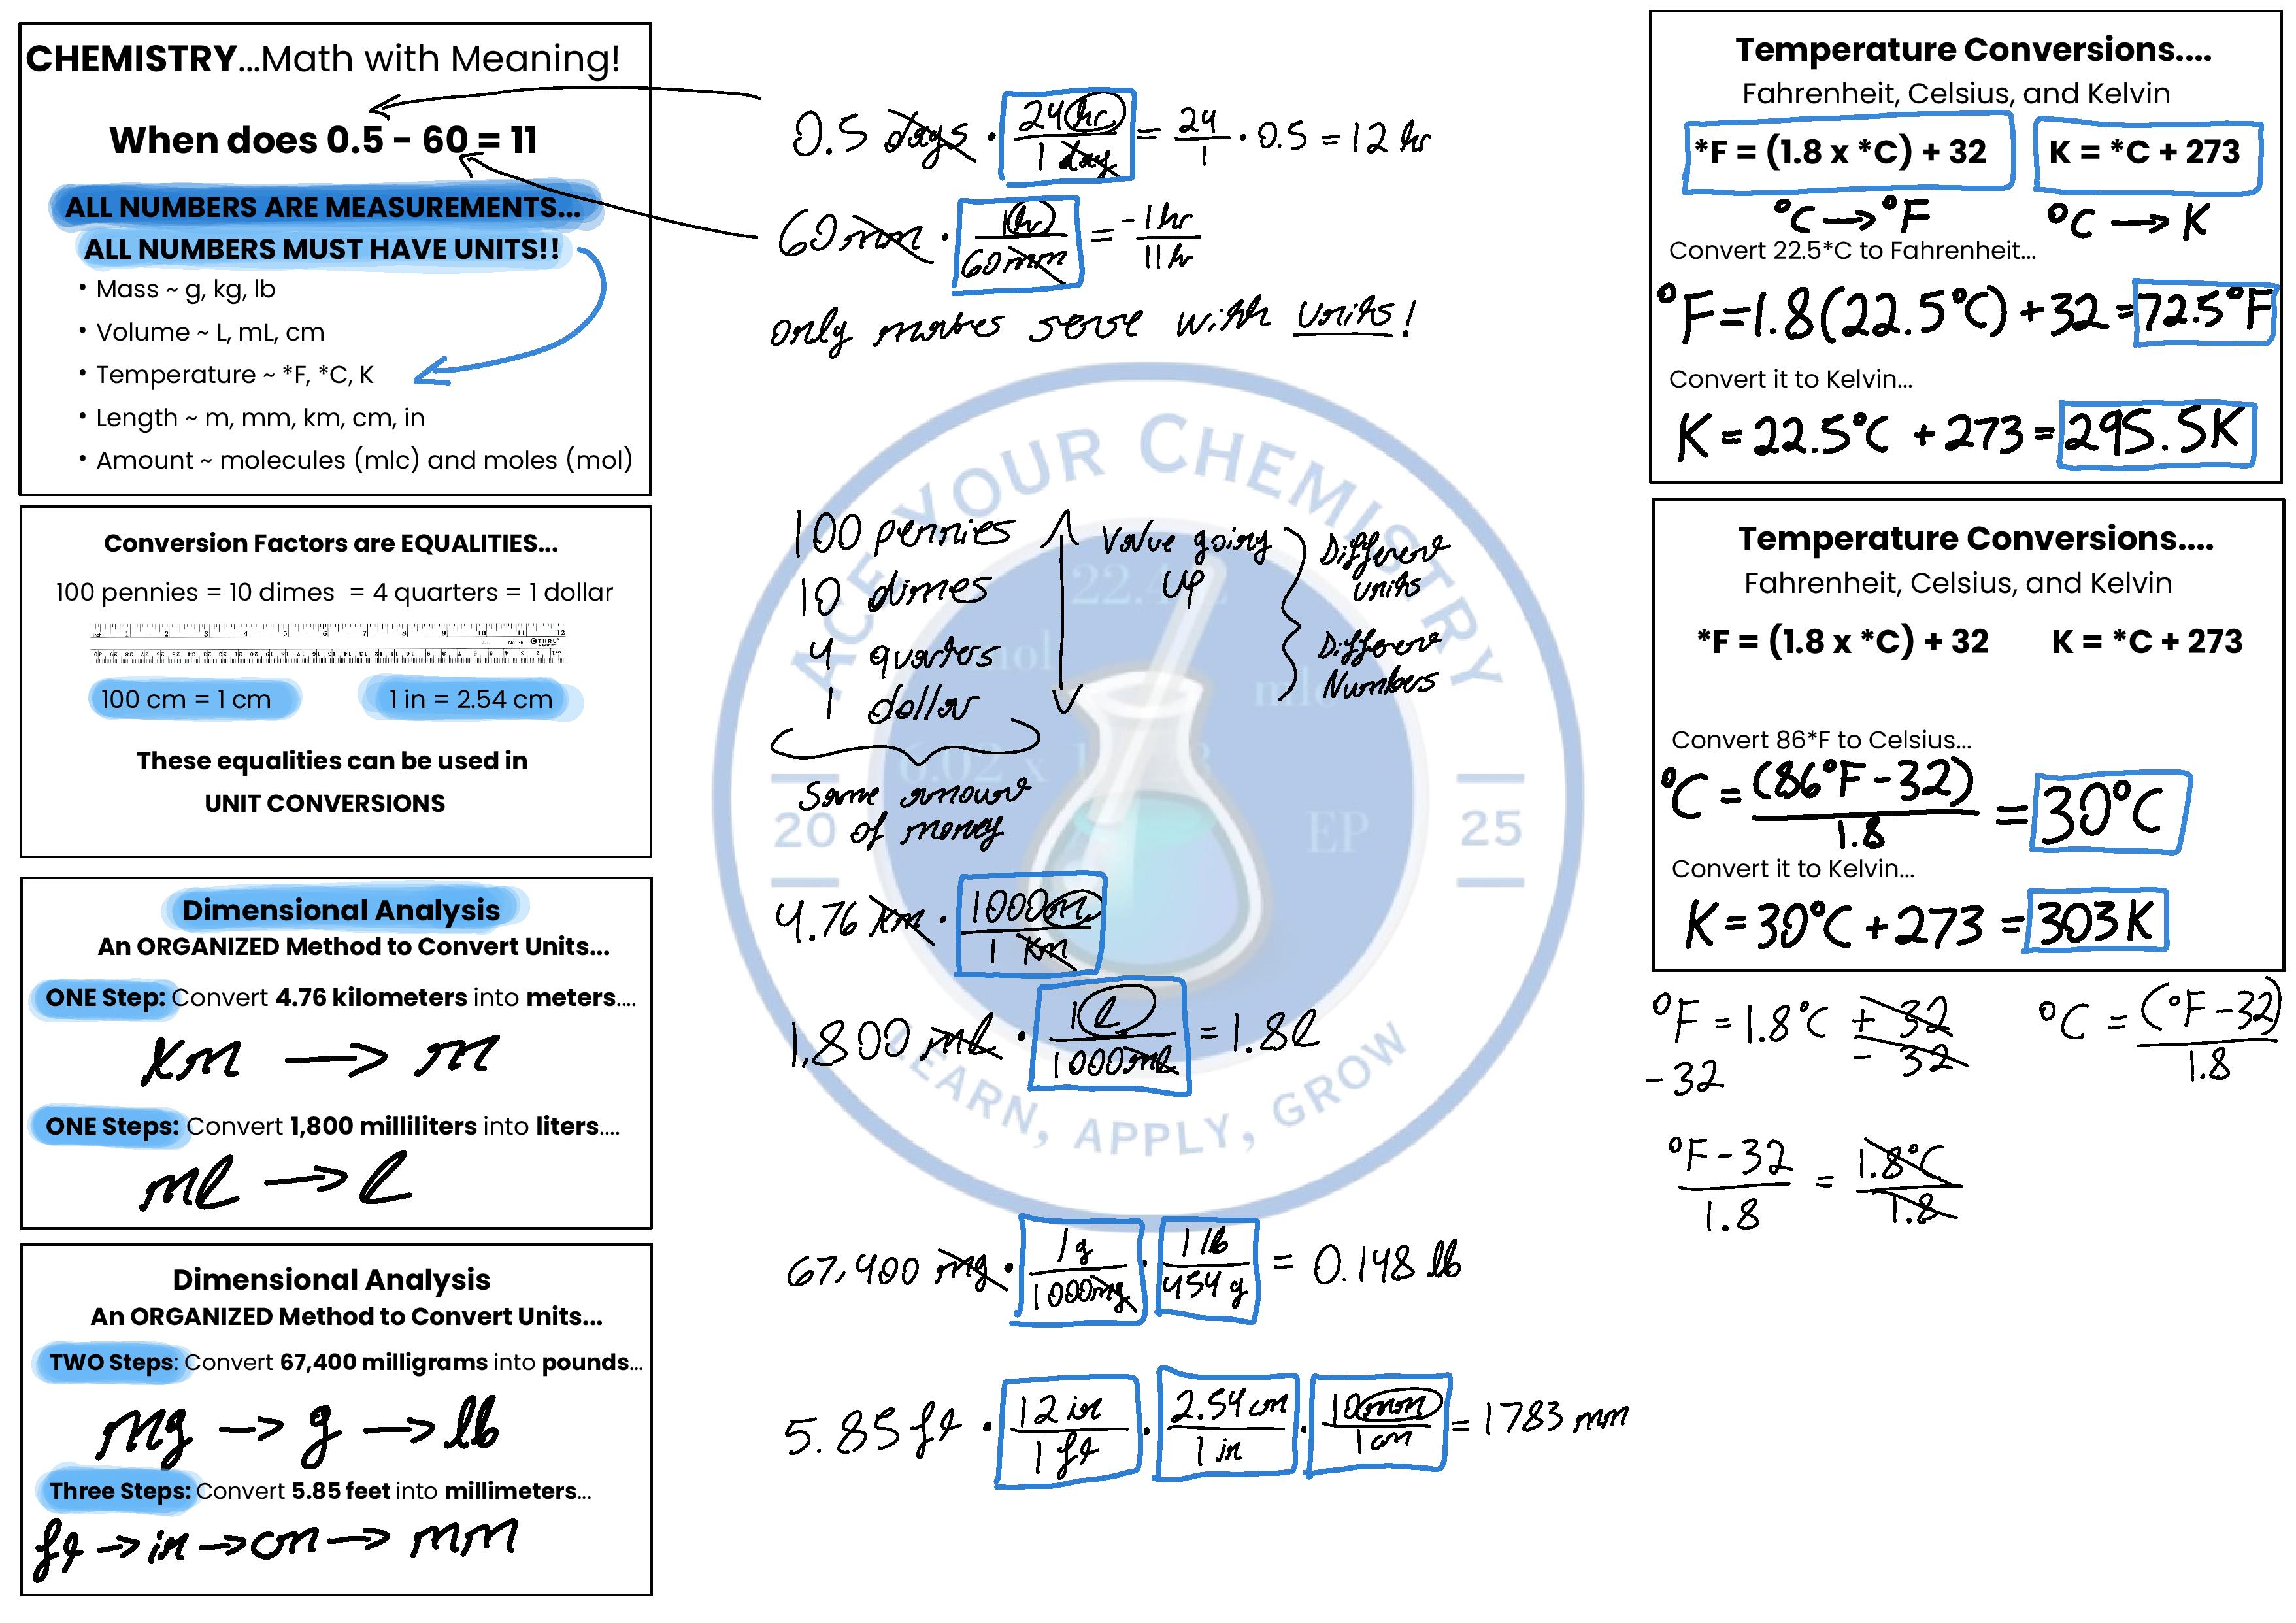 CHEMISTRY...Math with Meaning!
When does 0.5 - 60 = 11
ALL NUMBERS ARE MEASUREMENTS...
ALL NUMBERS MUST HAVE UNITS!!
• Mass ~ g, kg, lb
• Volume ~ L, mL, cm
• Temperature ~ *F, *C, K
• Length ~ m, mm, km, cm, in
• Amount ~ molecules (mlc) and moles (mol)
Conversion Factors are EQUALITIES...
100 pennies = 10 dimes = 4 quarters = 1 dollar
100 cm = 1 cm
1 in = 2.54 cm
These equalities can be used in
UNIT CONVERSIONS
Dimensional Analysis
An ORGANIZED Method to Convert Units...
ONE Step: Convert 4.76 kilometers into meters....
km → m
ONE Steps: Convert 1,800 milliliters into liters....
ml → l
Dimensional Analysis
An ORGANIZED Method to Convert Units...
TWO Steps: Convert 67,400 milligrams into pounds...
mg → g → lb
Three Steps: Convert 5.85 feet into millimeters...
ft → in → cm → mm
0.5 days · 24 hr / 1 day = 24 / 1 · 0.5 = 12 hr
60 mm · 1 hr / 60 mm = -1 hr / 11 hr
only makes sense with units!
100 pennies
10 dimes
4 quarters
1 dollar
Value going
up
Different
units
Different
Numbers
Same amount
of money
4.76 km · 1000 m / 1 km
1,800 ml · 1 l / 1000 ml = 1.8 l
67,400 mg · 1 g / 1000 mg · 1 lb / 454 g = 0.148 lb
5.85 ft · 12 in / 1 ft · 2.54 cm / 1 in · 10 mm / 1 cm = 1783 mm
ACE YOUR CHEMISTRY
20
25
EP
LEARN, APPLY, GROW
Temperature Conversions....
Fahrenheit, Celsius, and Kelvin
*F = (1.8 x *C) + 32
K = *C + 273
°C → °F
°C → K
Convert 22.5*C to Fahrenheit...
°F = 1.8(22.5°C) + 32 = 72.5°F
Convert it to Kelvin...
K = 22.5°C + 273 = 295.5K
Temperature Conversions....
Fahrenheit, Celsius, and Kelvin
*F = (1.8 x *C) + 32
K = *C + 273
Convert 86*F to Celsius...
°C = (86°F - 32) / 1.8 = 30°C
Convert it to Kelvin...
K = 30°C + 273 = 303 K
°F = 1.8°C + 32
-32 - 32
°C = (°F - 32) / 1.8
°F - 32 / 1.8 = 1.8°C / 1.8